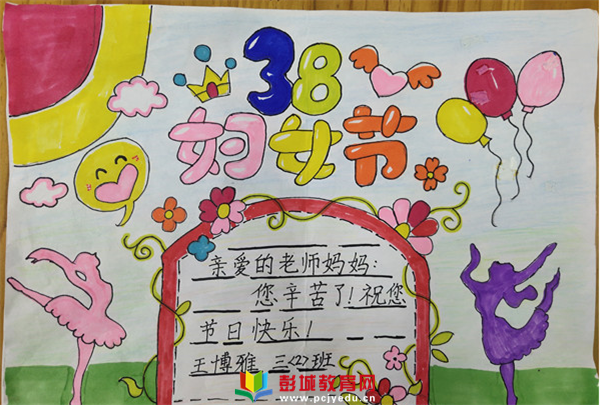 38
妇女节
亲爱的老师妈妈：
您辛苦了！祝您
节日快乐！
王博雅 三<2>班
彭城教育网
www.pcjyedu.cn